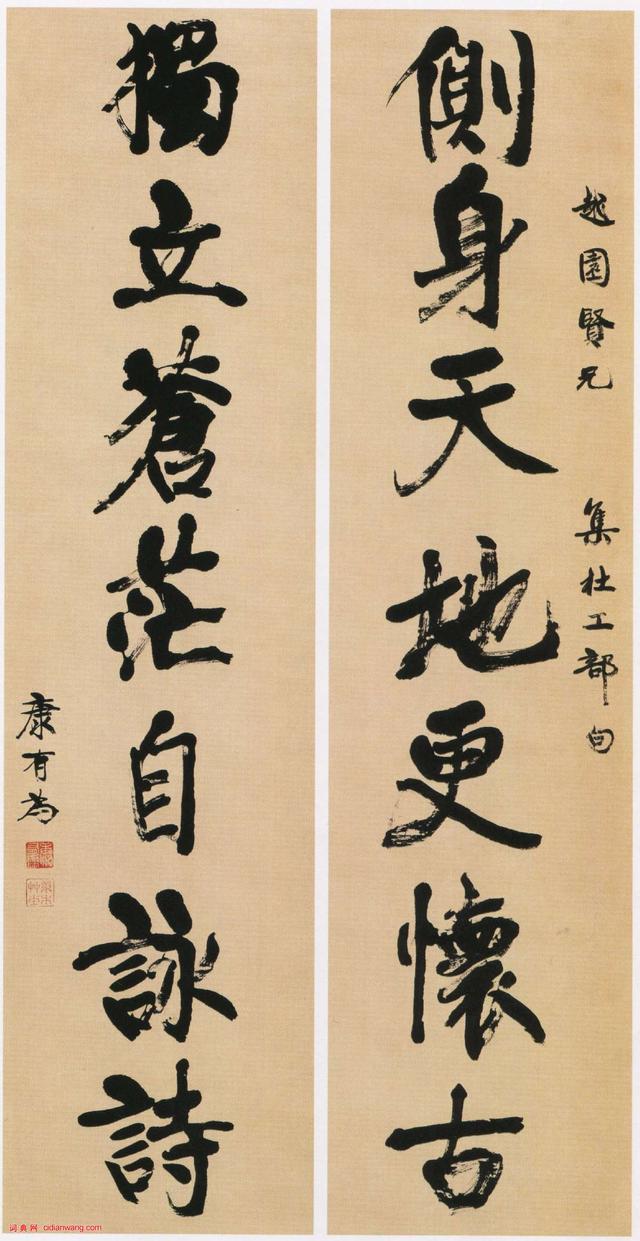 越園賢兄 集杜工部句
側身天地更懷古
獨立蒼茫自詠詩
康有為
词典网 cidianwang.com